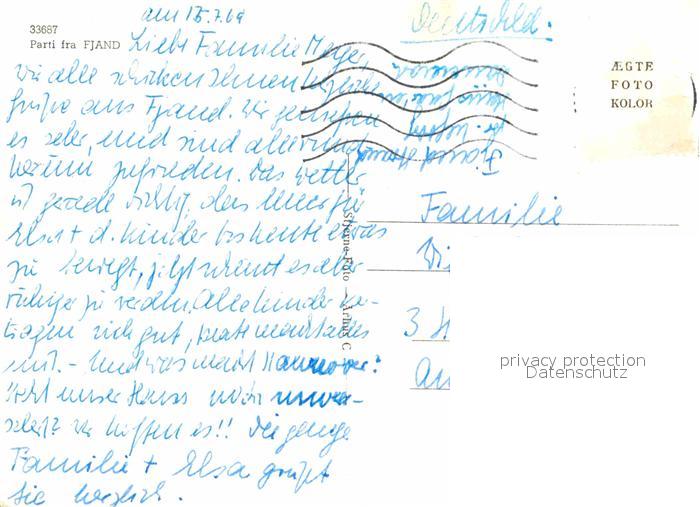 am 15.7.69
Deutschld.
33687
Parti fra FJAND
Liebe Familie Meyer,
wir alle schicken Ihnen herzliche
Grüße aus Fjand. Wir geniessen
es sehr, und sind alle rund
herum zufrieden. Das Wetter
ist gerade richtig, das Meer für
Elsa + d. Kinder bis heute etwas
zu bewegt, jetzt scheint es aber
ruhiger zu werden. Alle Kinder ver-
tragen sich gut, was macht alles
mit. - Und was macht Hannover?
Steht unser Haus noch unver-
sehrt? Wir hoffen es!! Die ganze
Familie + Elsa grüßt
Sie herzlich.
ÆGTE
FOTO
KOLOR
Stjerne-Foto - Århus C
Familie
3
privacy protection
Datenschutz